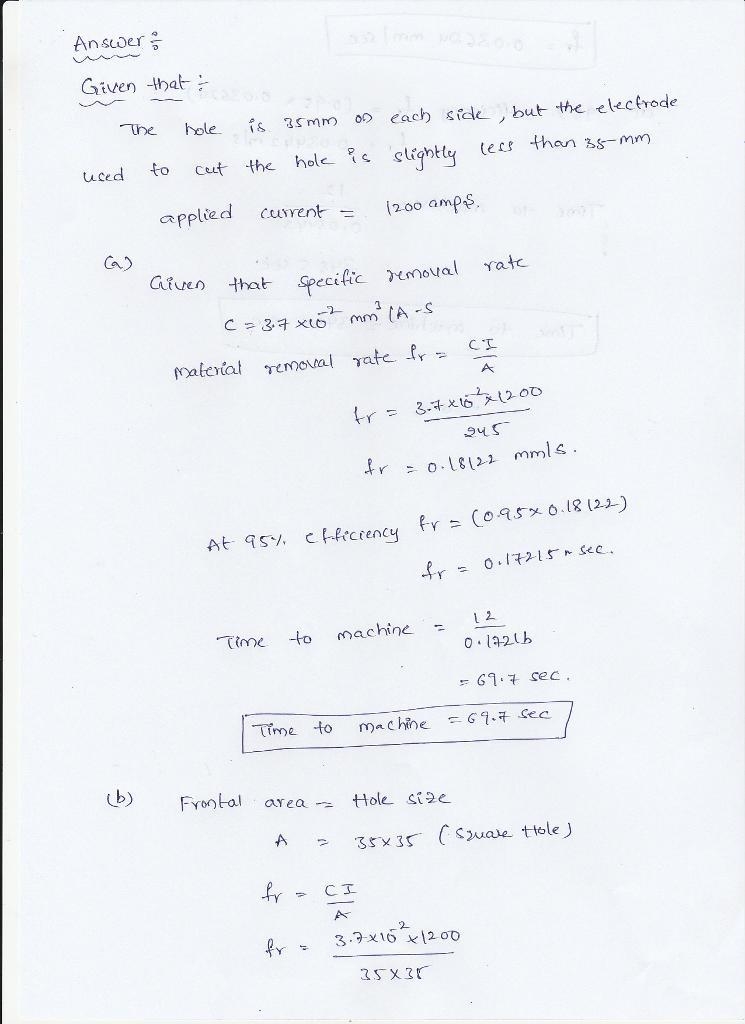 Answer :
Given that :
The hole is 35mm on each side, but the electrode
used to cut the hole is slightly less than 35-mm
applied current = 1200 amps.
(a)
Given that specific removal rate
C = 3.7 x10⁻² mm³/A-s
material removal rate fr = CI/A
fr = 3.7x10⁻²x1200/245
fr = 0.18122 mm/s.
At 95% efficiency fr = (0.95x0.18122)
fr = 0.17215 sec.
Time to machine = 12/0.17216
= 69.7 sec.
Time to machine = 69.7 sec
(b) Frontal area = Hole size
A = 35x35 (Square Hole)
fr = CI/A
fr = 3.7x10⁻²x1200/35x35